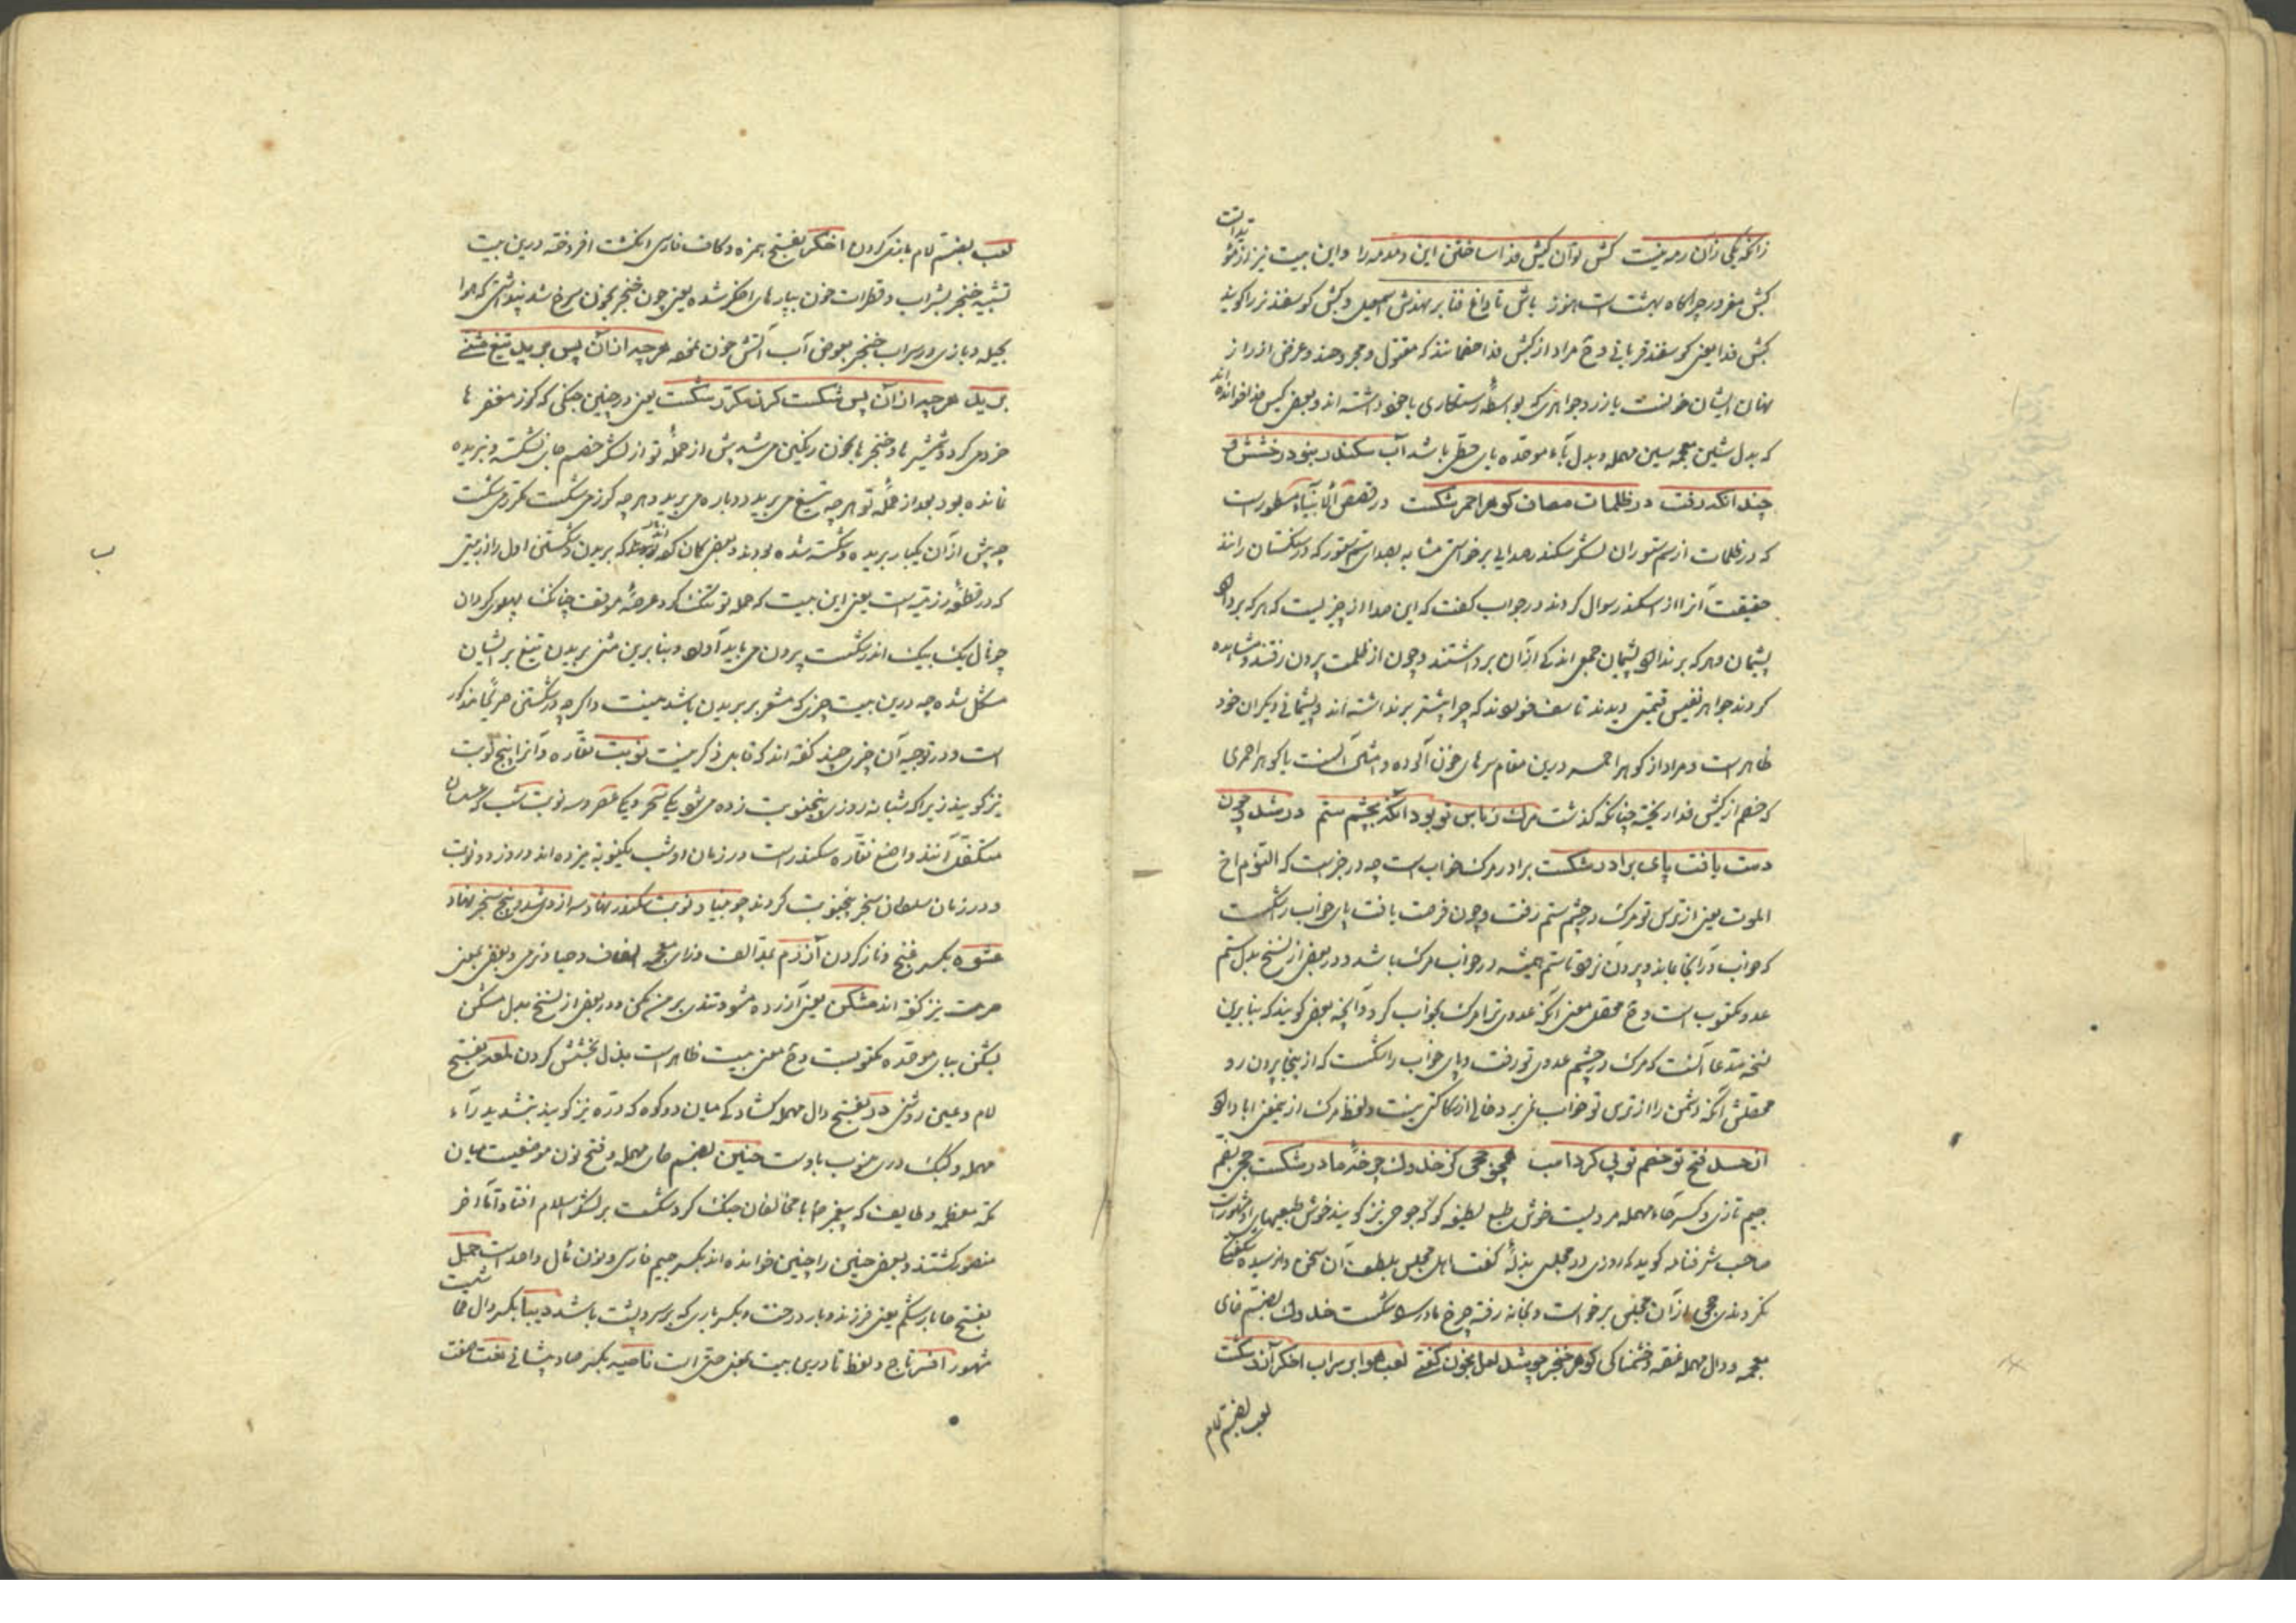 زانکه یکی زان رمه نیست کش توان کیش فدا ساختن این دمدمه را و این بیت نیز
کبش مغرور چراگاه بهشت است هنوز باش تا داغ فنا بر نهدش و کبش گوسفند نر را گویند
کبش فدا یعنی گوسفند قربانی و مراد از کبش فدا خصمانند که مقتول و مجروحند و غرض از راز
نهان ایشان یا زر و جواهری که بواسطه رستگاری با خود داشته اند و بعضی کیس فدا خوانده اند
که بدل شین معجمه سین مهمله و بدل باء موحده یای حطی باشد آب سکندر بود درخشش و
چندانکه رفت در ظلمات مصاف گوهر احمر شکست در قصص الانبیاء مسطور است
که در ظلمات از سم ستوران لشکر سکندر صدایی برخواستی مشابه بصدای سم ستور که در سنگستان رانند
حقیقت آنرا از اسکندر سوال کردند در جواب گفت که این صدا از چیزیست که هر که بردارد
پشیمان و هر که برندارد پشیمان جمعی اندکی ازان برداشتند و چون از ظلمت بیرون رفتند و مشاهده
کردند جواهر نفیس قیمتی دیدند تاسف خوردند که چرا بیشتر برنداشته اند و پشیمانی دیگران خود
ظاهر است و مراد از گوهر احمر درین مقام سرهای خون آلوده و یا گوهر احمری
که خصم از کیش فدا ریخته چنانکه گذشت مرگ ز باس تو بود آنکه بچشم ستم در شد و چون
دست یافت پای برادر شکست برادر مرگ خواب است چه در خبرست که النوم اخ
الموت یعنی از ترس تو مرگ در چشم ستم رفت و چون فرصت یافت پای خواب را شکست
که خواب در آنجا بماند و بیرون نرود تا ستم همیشه در خواب مرگ باشد و در بعضی از نسخ بدل ستم
عدو مکتوب است و محصل معنی آنکه عدوی ترا مرگ بخواب کرد و آنچه بعضی گویند که بنابرین
نسخه مدعا آنست که مرگ در چشم عدوی تو رفت و پای خواب را شکست که از پنجا بیرون رو
محصلش آنکه دشمن را از ترس تو خواب نمی برد خالی از رکاکتی نیست و لفظ مرگ ازین معنی ابا دارد
از حسد فتح تو خصم تو پی کرد اسب همچو جحی کز خدوک چرخه مادر شکست جحی بضم
جیم تازی و کسر حاء مهمله مردیست خوش طبع لطیفه گو که جوحی نیز گویند خوش طبعیهای او مشهورست
صاحب شرفنامه گوید که روزی در مجلسی بذله گفت اهل مجلس بلطف آن سخن نرسیده
نکردند جحی ازان مجلس برخواست و بخانه رفته چرخ مادر را شکست خدوک بضم خای
معجمه و دال مهمله غصه و خشمناکی گوهر خنجر چو شد لعل بخون گفتی لعب هوا بر سراب اخگر آذر شکست
لعب بضم لام
لعب بضم لام بازی کردن اخگر بفتح همزه و کاف فارسی انگشت افروخته درین بیت
تشبیه خنجر بسراب و قطرات خون بپارهای اخگر شده یعنی چون خنجر بخون سرخ شد پنداشتی که هوا
بحیله و بازی در سراب خنجر بعوض آب آتش خون نموده هرچه ازان پس برید تیغ مثنی
برید هرچه ازان پس شکست گرز مکرر شکست یعنی در چنین جنگی که گرز مغفرها
خرد می کرد و شمشیرها و خنجرها بخون رنگین می شد پیش از حمله تو از لشکر خصم جای نشکسته و نبریده
نمانده بود بعد از حمله تو هرچه تیغ می برید دوباره می برید و هرچه گرز می شکست مکرر می شکست
چه پیش ازان یکبار بریده و شکسته شده بودند و بعضی گمان کرده اند که بریدن و شکستن اول را از بیتی
که در قطعه رزمیه است یعنی این بیت که حمله تو تنگ کرد عرصه موقف چنانک پهلوی گردان
چو نال یک بیک اندر شکست بیرون می باید آورد و بنابرین مثنی بریدن تیغ بر ایشان
مشکل شده چه درین بیت چیزی که مشعر بر بریدن باشد نیست و اگرچه شکستن صریحا مذکور
است و در توجیه آن چیزی چند گفته اند که قابل ذکر نیست نوبت نقاره و آنرا پنج نوبت
نیز گویند زیرا که شبانه روزی پنجنوبت زده می شود یکی سحر و یکی عصر و سه نوبت شب
آنند واضع نقاره سکندر است در زمان او شب یکنوبت میزده اند و روز دو نوبت
و در زمان سلطان سنجر پنجنوبت کردند چو بنیاد نوبت سکندر نهاد سه از وی شد و پنج سنجر نهاد
عشوه بکسر غنج و ناز کردن آزرم بمد الف و زای معجمه انصاف و حیا و نرمی و بعضی بمعنی
حرمت نیز گفته اند مشکن یعنی آزرده مشو و تندی بر من مکن و در بعضی از نسخ بدل مشکن
بشکن ببای موحده مکتوبست و معنی بیت ظاهر است بذل بخشش کردن لمعه بفتح
لام و عین روشنی در بفتح دال مهمله گشادگی میان دو کوه که دره نیز گویند بتشدید راء
مهمله و کبک دری منسوب باوست حنین بضم حای مهمله و فتح نون موضعیست میان
مکه معظمه و طایف که پیغمبر ما با مخالفان جنگ کرد شکست بر لشکر اسلام افتاد و آخر
منصور گشتند و بعضی حنین را چنین خوانده اند بکسر جیم فارسی و نون مآل واحدست حمل
بفتح حا بار شکم یعنی فرزند و بار درخت و بکسر باری که بر سر و پشت باشد دیبا بکسر دال
مشهور افسر تاج و لفظ تا درین بیت بمعنی حتی است ناصیه بکسر صاد پیشانی
ب